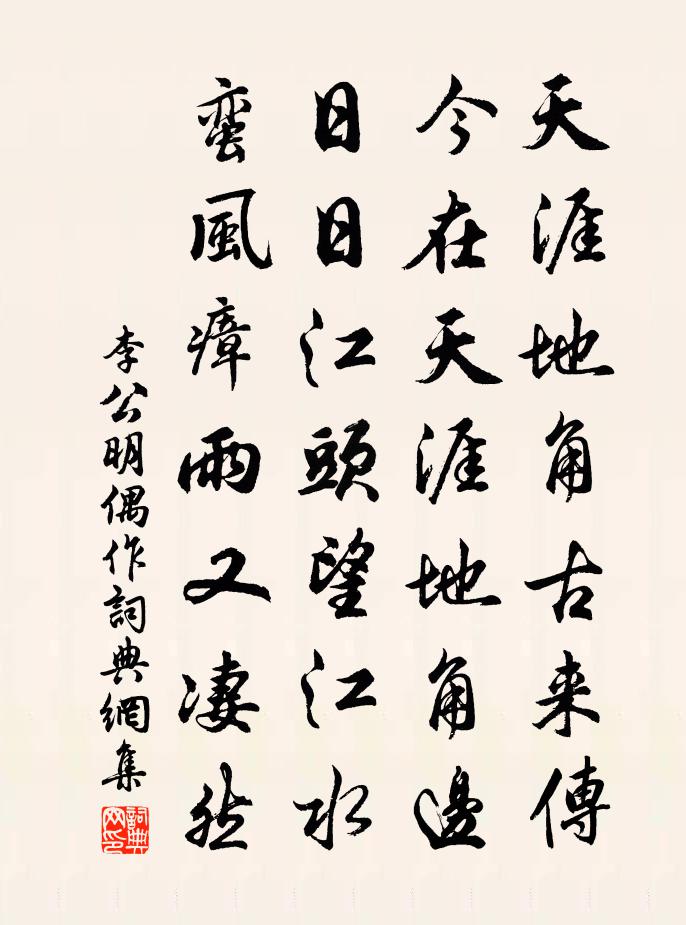 天涯地角古来傳
今在天涯地角邊
日日江頭望江水
蛮風瘴雨又凄然
李公明偶作詞典網集
詞典网印